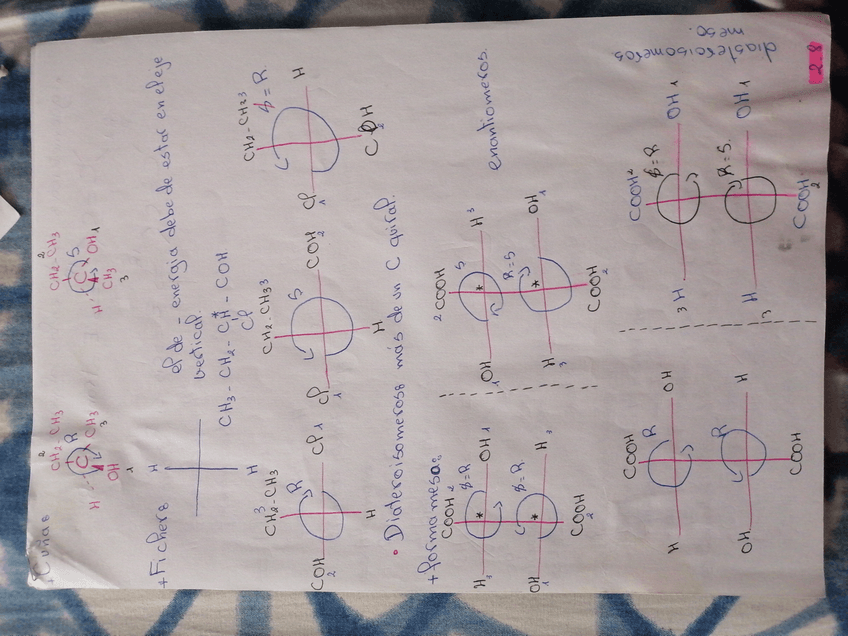 Cuñas
2
CH2-CH3
H C R CH3
OH 3
1
2
CH2-CH3
H C S OH 1
CH3
3
+ Fichers
H
H
el de - energia debe de estar en el eje
vertical.
CH3-CH2-CH*-COH
Cl
3
CH2-CH3
COH R Cl 1
2
H
CH2-CH3 3
Cl S COH
1 2
H
CH2-CH3 3
S=R
Cl H
1
COH
2
• Diateroisomeros más de un C quiral.
+ forma mesa:
COOH 2
S=R
H3 * OH 1
S=R
OH 1 * H 3
COOH
2
2 COOH
S
OH 1 * H 3
R=S
H 3 * OH 1
COOH
2
enantiomeros.
COOH
R
H OH
R
OH H
COOH
COOH 2
S=R
3 H OH 1
R=S.
3 H OH 1
COOH
2
diasteroisomeros
meso.
2.8